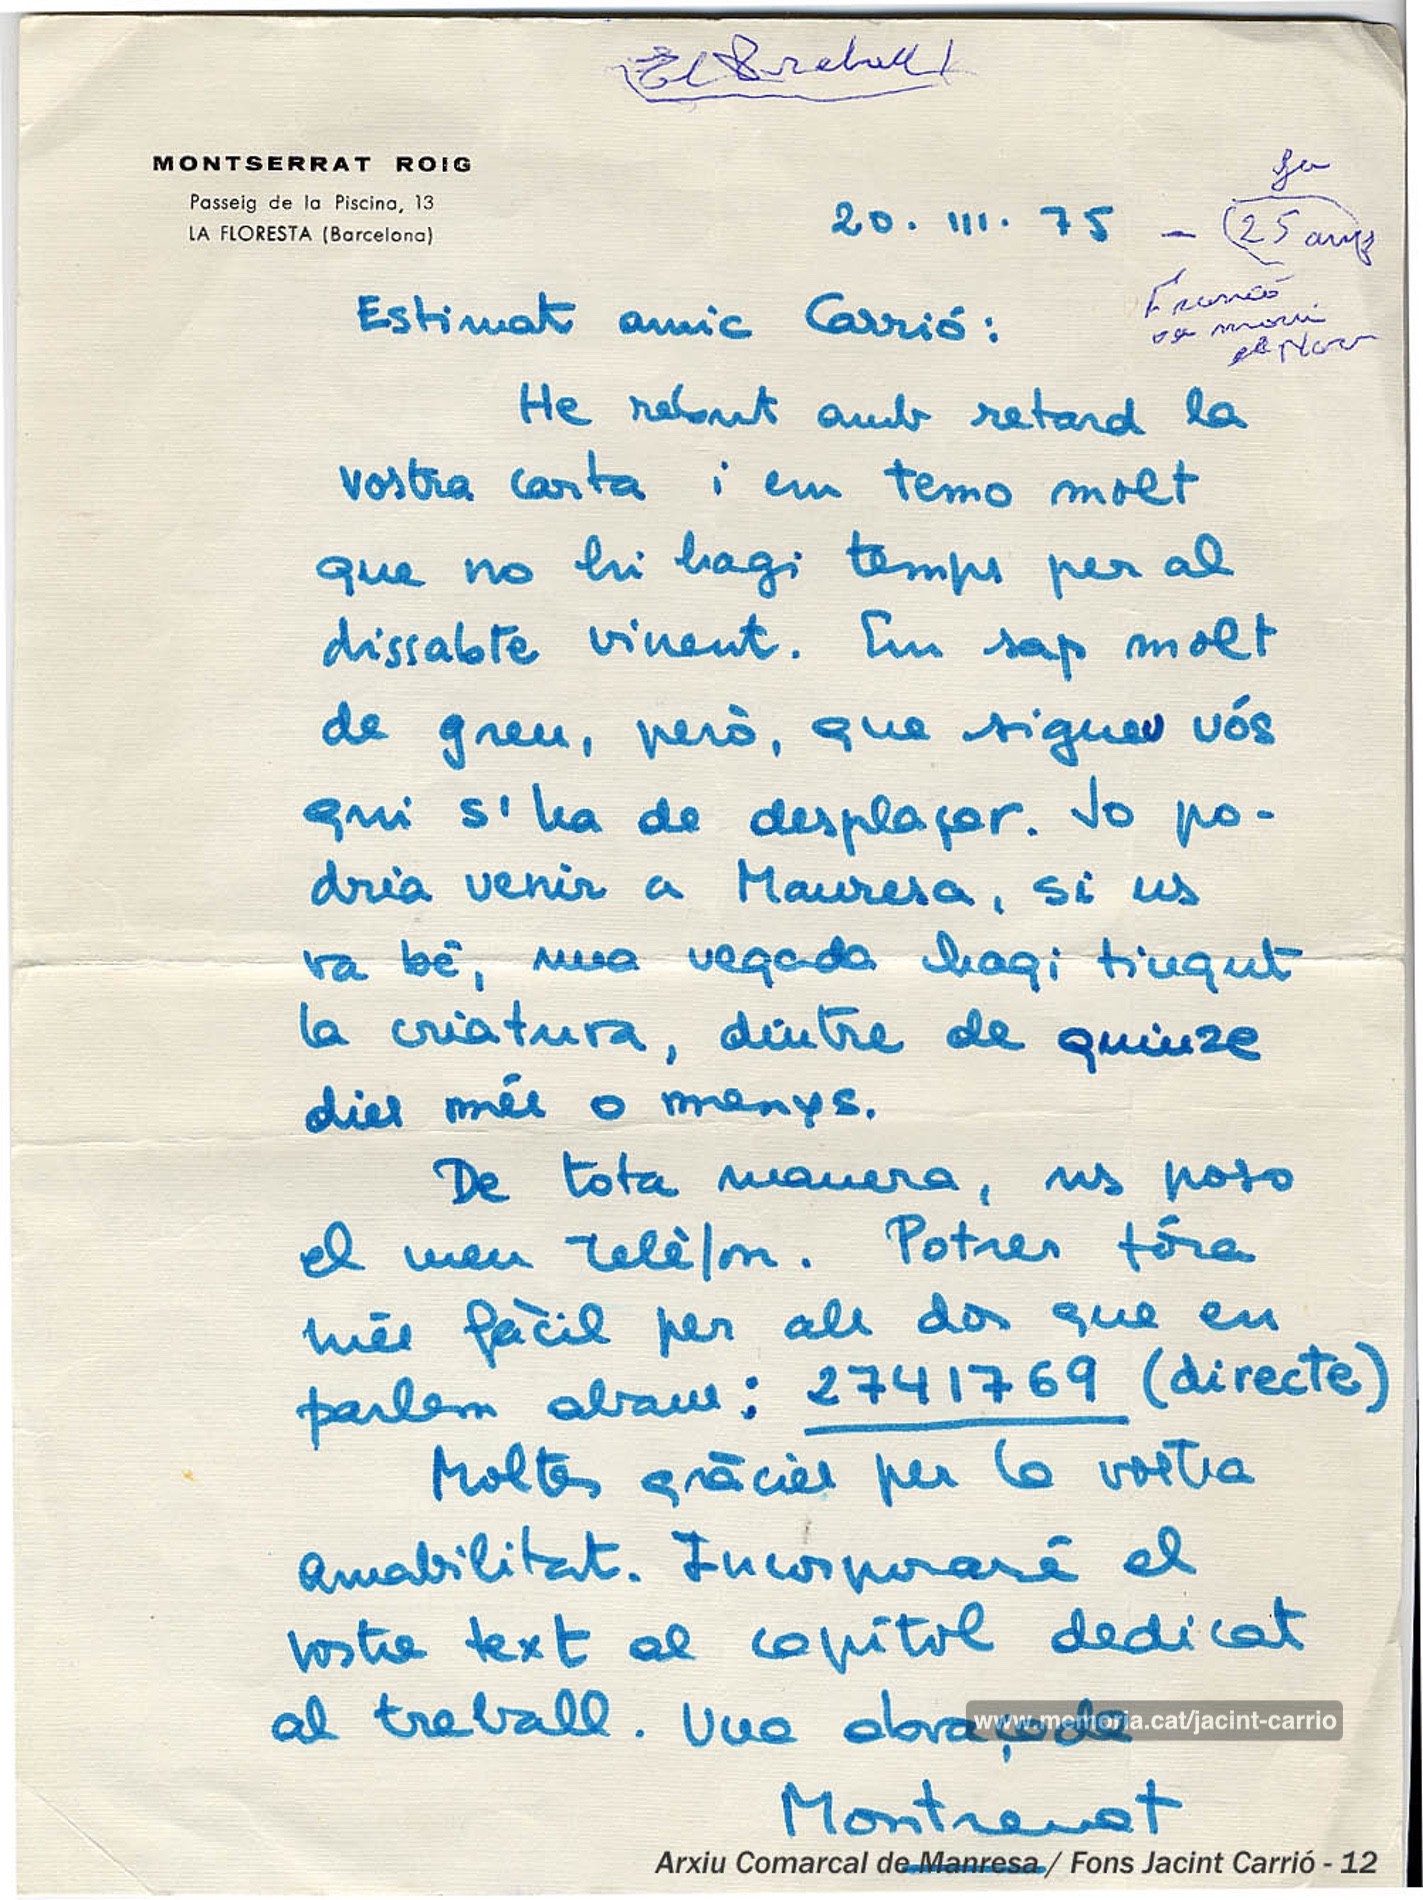 El Treball
MONTSERRAT ROIG
Passeig de la Piscina, 13
LA FLORESTA (Barcelona)
fa
20. III. 75 - 25 anys
Franco
va morir
el Nov
Estimat amic Carrió:
He rebut amb retard la
vostra carta i em temo molt
que no hi hagi temps per al
dissabte vinent. Em sap molt
de greu, però, que sigueu vós
qui s'ha de desplaçar. Jo po-
dria venir a Manresa, si us
va bé, una vegada hagi tingut
la criatura, dintre de quinze
dies més o menys.
De tota manera, us poso
el meu telèfon. Potser fóra
més fàcil per als dos que en
parlem abans: 2741769 (directe)
Moltes gràcies per la vostra
amabilitat. Incorporaré el
vostre text al capítol dedicat
al treball. Una abraçada
www.memoria.cat/jacint-carrio
Montserrat
Arxiu Comarcal de Manresa / Fons Jacint Carrió - 12